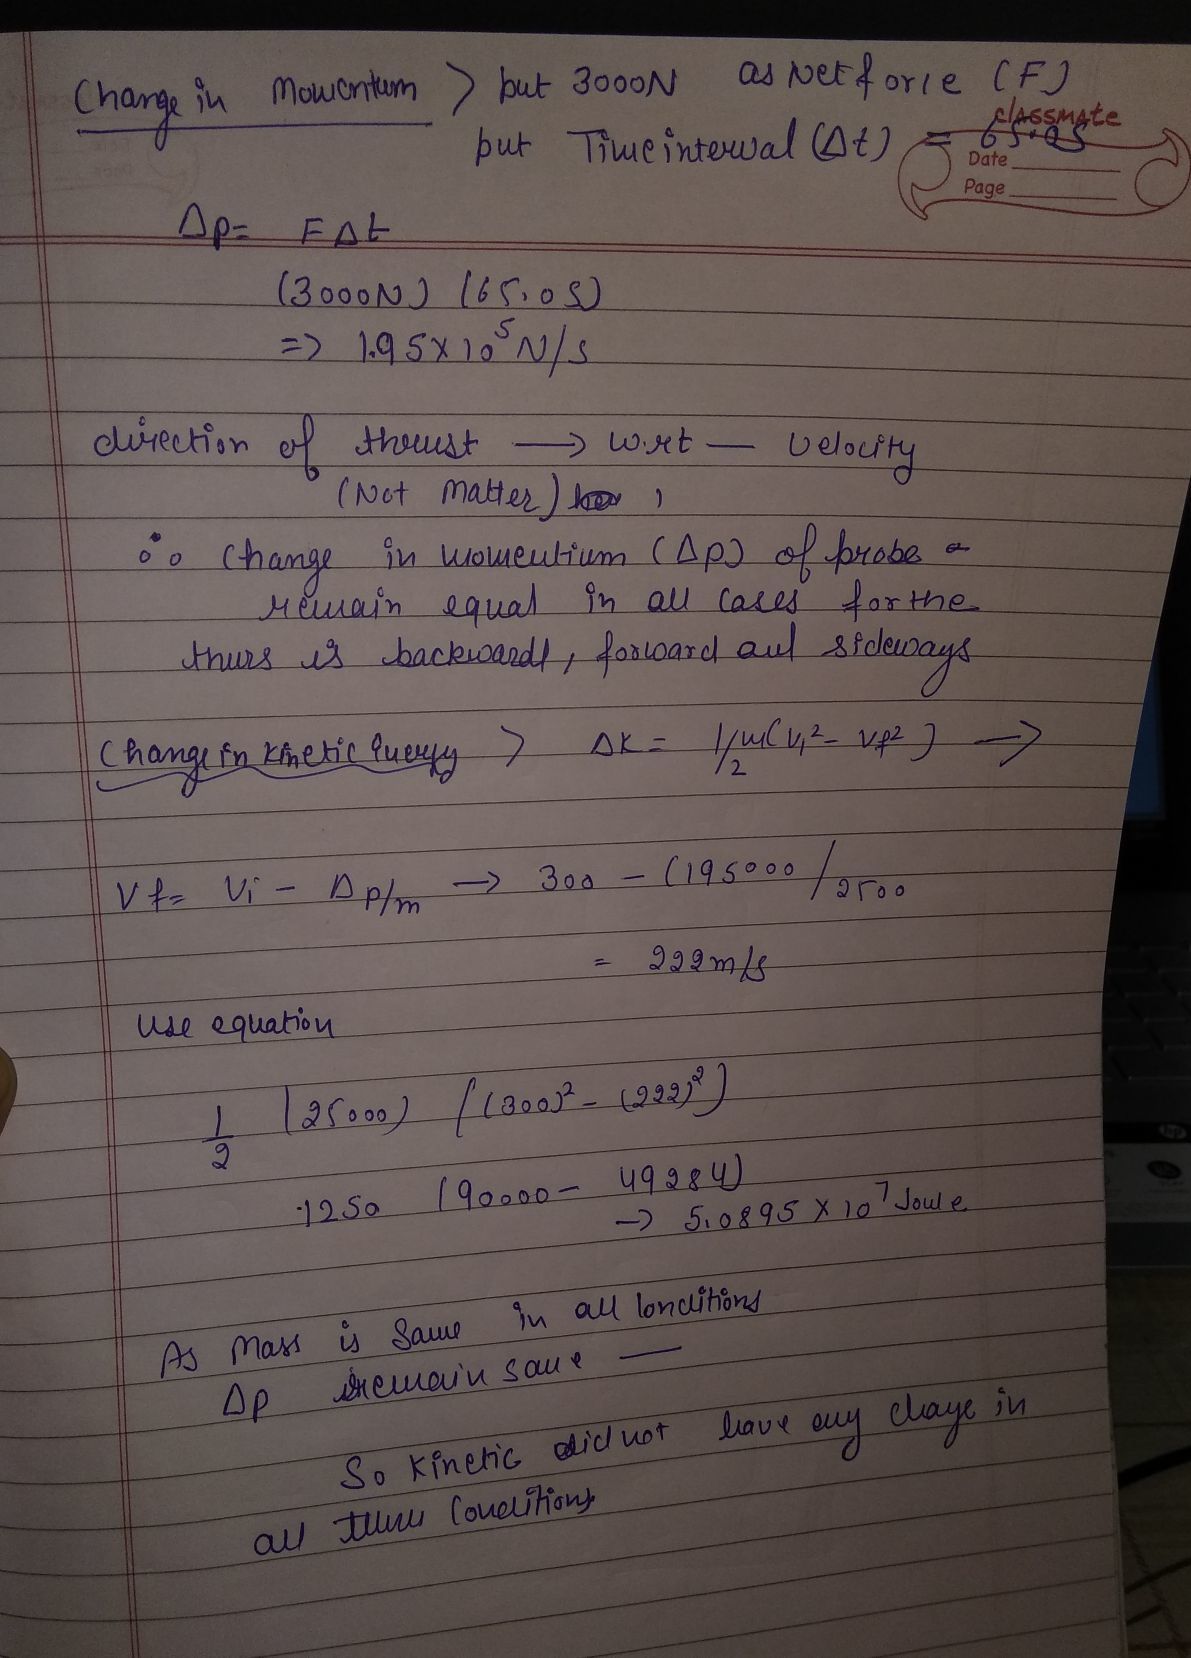 Change in Momentum > but 3000N as Net force (F)
classmate
but Time interval (Δt) = 65.0s
Date
Page
Δp = FΔt
(3000N) (65.0S)
=> 1.95 × 10⁵ N/s
direction of thrust → w.r.t — velocity
(Not Matter) ,
∴ Change in momentium (Δp) of probe
remain equal in all cases for the
thurs is backwards, forward and sideways
Change in kinetic Energy > ΔK = 1/2 m(Vi² - Vf²) →
Vf = Vi - Δp/m → 300 - (195000/2500
= 222 m/s
Use equation
1/2 (25000) [(300)² - (222)²]
1250 (90000 - 49284)
→ 5.0895 × 10⁷ Joule
As Mass is Same in all Conditions
Δp remain same —
So Kinetic did not have any change in
all Conditions